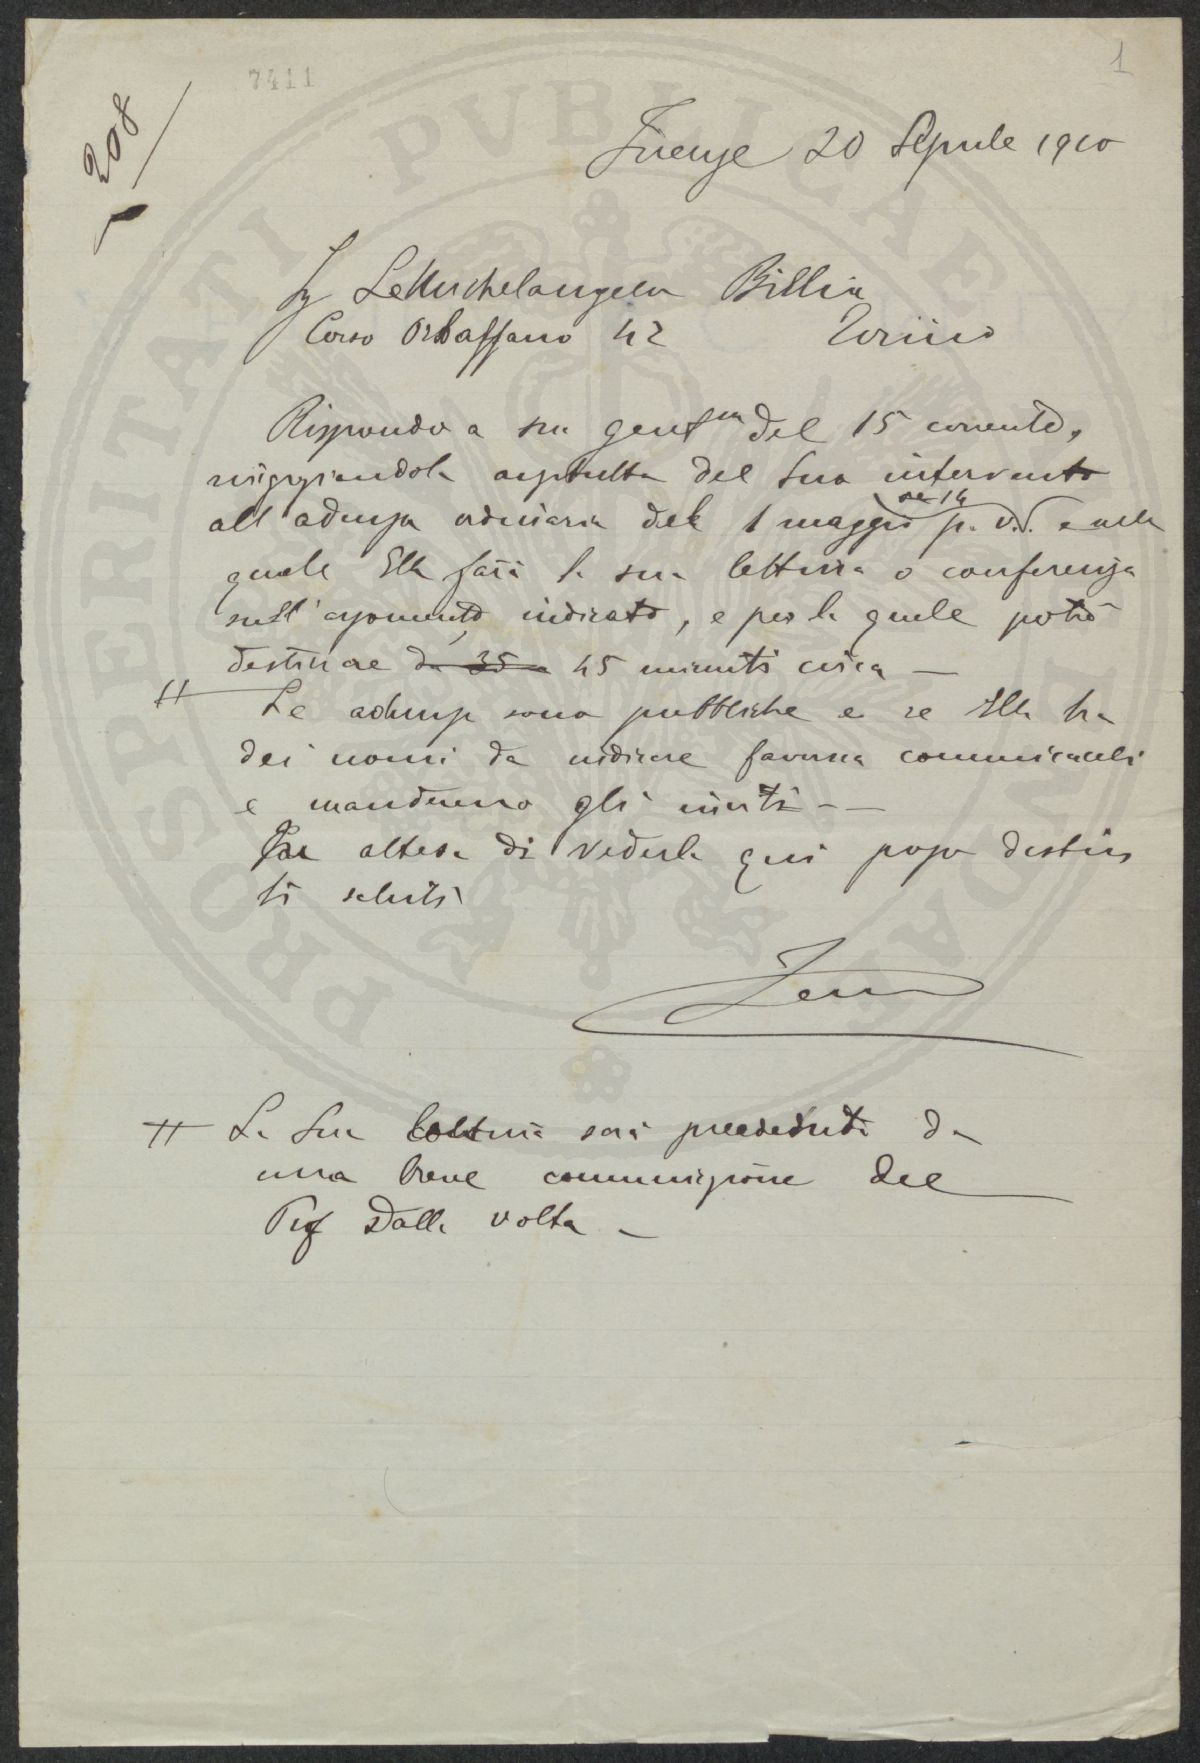 7411
1
208
Firenze 20 Aprile 1910
Sg L Michelangelo Billia
Corso Orbassano 42 Torino
Rispondo a sua gent.ma del 15 corrente,
ringraziandola anzitutto del Suo intervento
ore 14
all'adunza ordinaria del 1 maggio p. v. e nella
quale Ella farà la sua lettura o conferenza
sull'argomento indicato, e per la quale potrà
destinare da 35 a 45 minuti circa —
# Le adunze sono pubbliche e se Ella ha
dei nomi da indicare favorisca comunicarceli
e manderemo gli inviti — —
In attesa di vederla qui porgo distin
ti saluti
# La Sua lettura sarà preceduta da
una breve comunicazione del
Prof Dalla Volta —
PROSPERITATI PVBLICAE